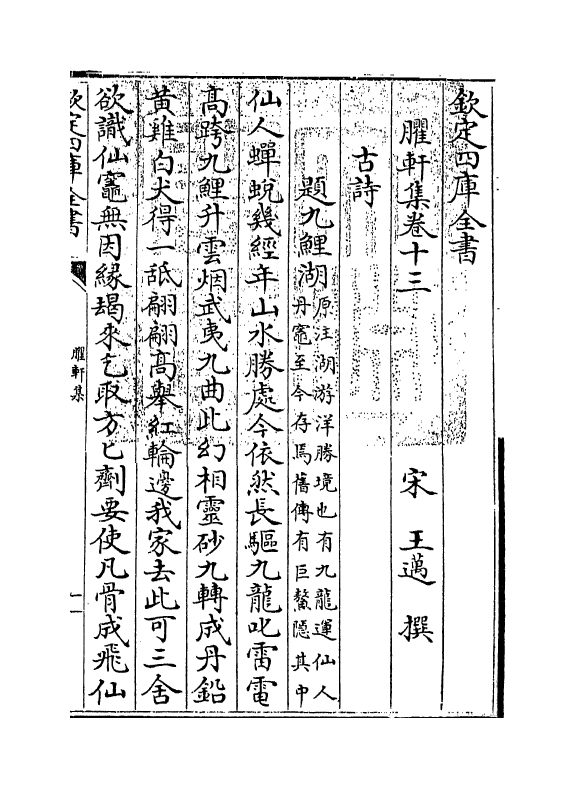 欽定四庫全書
臞軒集卷十三
宋 王邁 撰
古詩
題九鯉湖原注湖游洋勝境也有九龍運仙人
丹竈至今存焉舊傳有巨鰲隱其中
仙人蟬蛻幾經年山水勝處今依然長驅九龍叱雷電
高跨九鯉升雲烟武夷九曲此幻相靈砂九轉成丹鉛
黃雞白犬得一舐翩翩高舉紅輪邊我家去此可三舍
欲識仙竈無因緣朅來乞取方匕劑要使凡骨成飛仙
欽定四庫全書
臞軒集
一